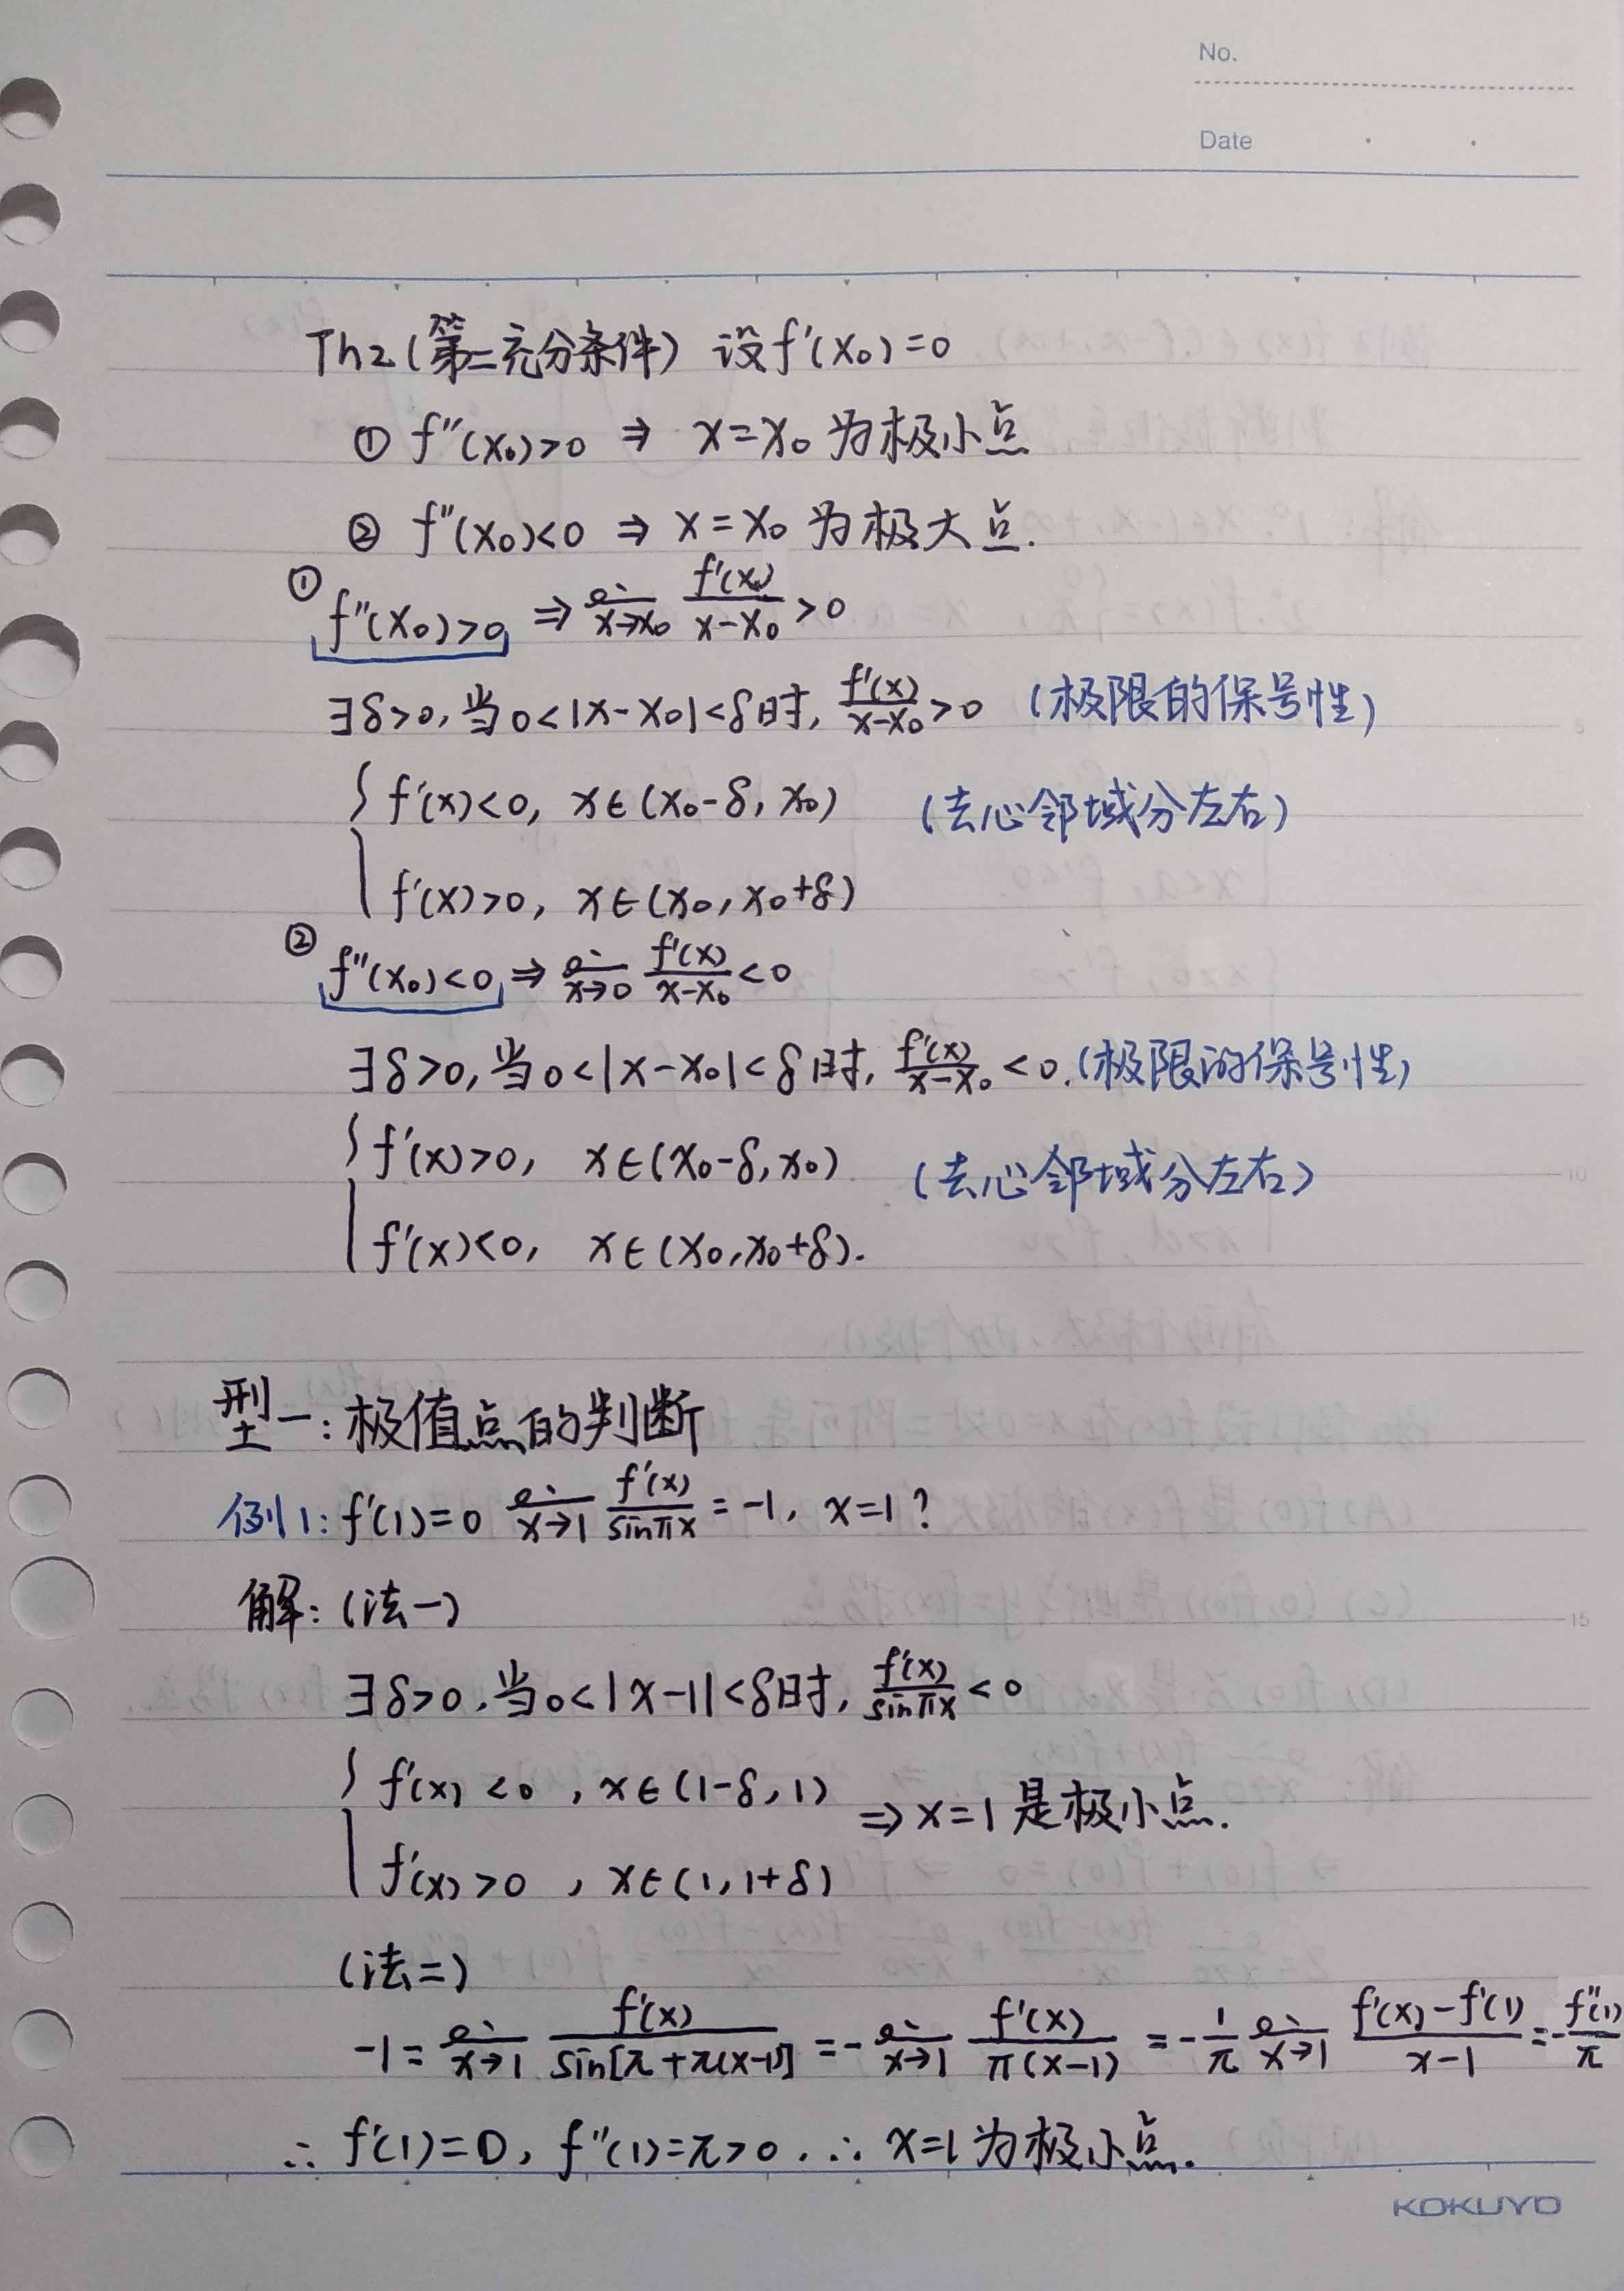 No.
Date
Th2(第二充分条件) 设f'(x₀)=0
① f''(x₀)>0 ⇒ x=x₀ 为极小点
② f''(x₀)<0 ⇒ x=x₀ 为极大点.
① f''(x₀)>0 ⇒ lim x→x₀ f'(x)/(x-x₀) >0
∃δ>0,当0<|x-x₀|<δ时, f'(x)/(x-x₀) >0 (极限的保号性)
{ f'(x)<0, x∈(x₀-δ, x₀) (去心邻域分左右)
f'(x)>0, x∈(x₀, x₀+δ)
② f''(x₀)<0 ⇒ lim x→0 f'(x)/(x-x₀) <0
∃δ>0,当0<|x-x₀|<δ时, f'(x)/(x-x₀) <0.(极限的保号性)
{ f'(x)>0, x∈(x₀-δ, x₀) (去心邻域分左右)
f'(x)<0, x∈(x₀, x₀+δ).
型一:极值点的判断
例1: f'(1)=0 lim x→1 f'(x)/sinπx = -1, x=1?
解: (法一)
∃δ>0,当0<|x-1|<δ时, f'(x)/sinπx <0
{ f'(x)<0, x∈(1-δ, 1) ⇒ x=1是极小点.
f'(x)>0, x∈(1, 1+δ)
(法二)
-1= lim x→1 f'(x)/sin[π+π(x-1)] = - lim x→1 f'(x)/π(x-1) = -1/π lim x→1 (f'(x)-f'(1))/(x-1) = -f''(1)/π
∴ f'(1)=0, f''(1)=π>0. ∴ x=1为极小点.
KOKUYO
5
10
15